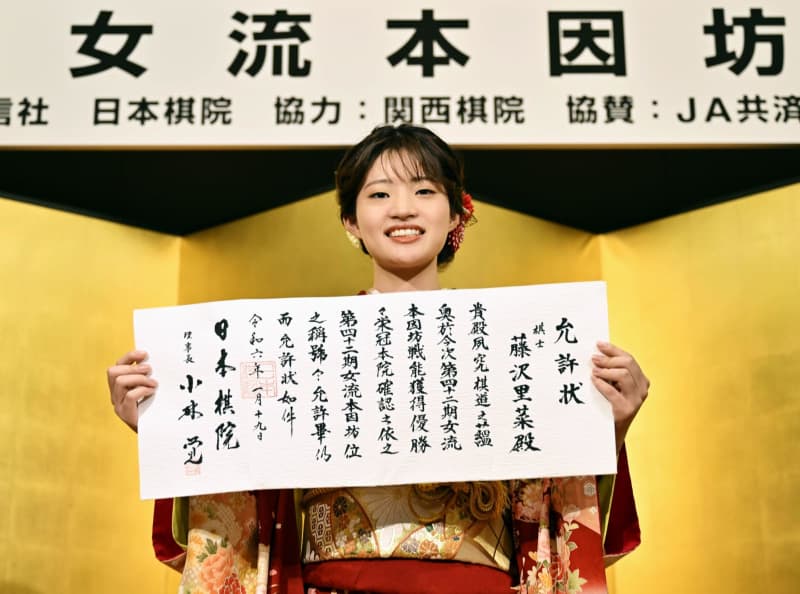 女流本因坊
信社 日本棋院 協力：関西棋院 協賛：JA共済
允許状
棋士 藤沢里菜殿
貴殿夙究棋道之蘊
奥於今次第四十二期女流
本因坊戦能獲得優勝
之栄冠本院確認之依之
第四十二期女流本因坊位
之称號令允許畢仍
而允許状如件
令和六年一月十九日
日本棋院
理事長 小林 覚